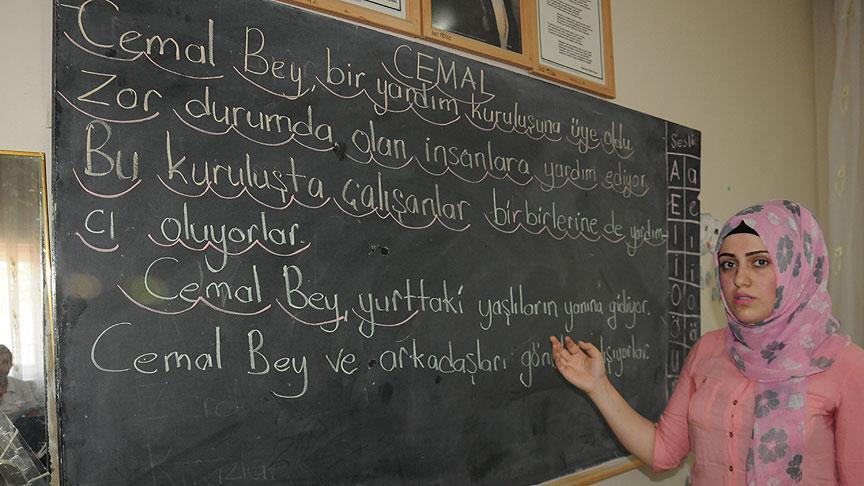 CEMAL
Cemal Bey, bir yardım kuruluşuna üye oldu.
Zor durumda olan insanlara yardım ediyor.
Bu kuruluşta çalışanlar birbirlerine de yardım-
cı oluyorlar.
Cemal Bey, yurttaki yaşlıların yanına gidiyor.
Cemal Bey ve arkadaşları
Sesli
A a
E e
I ı
İ i
O o
Ö ö
U